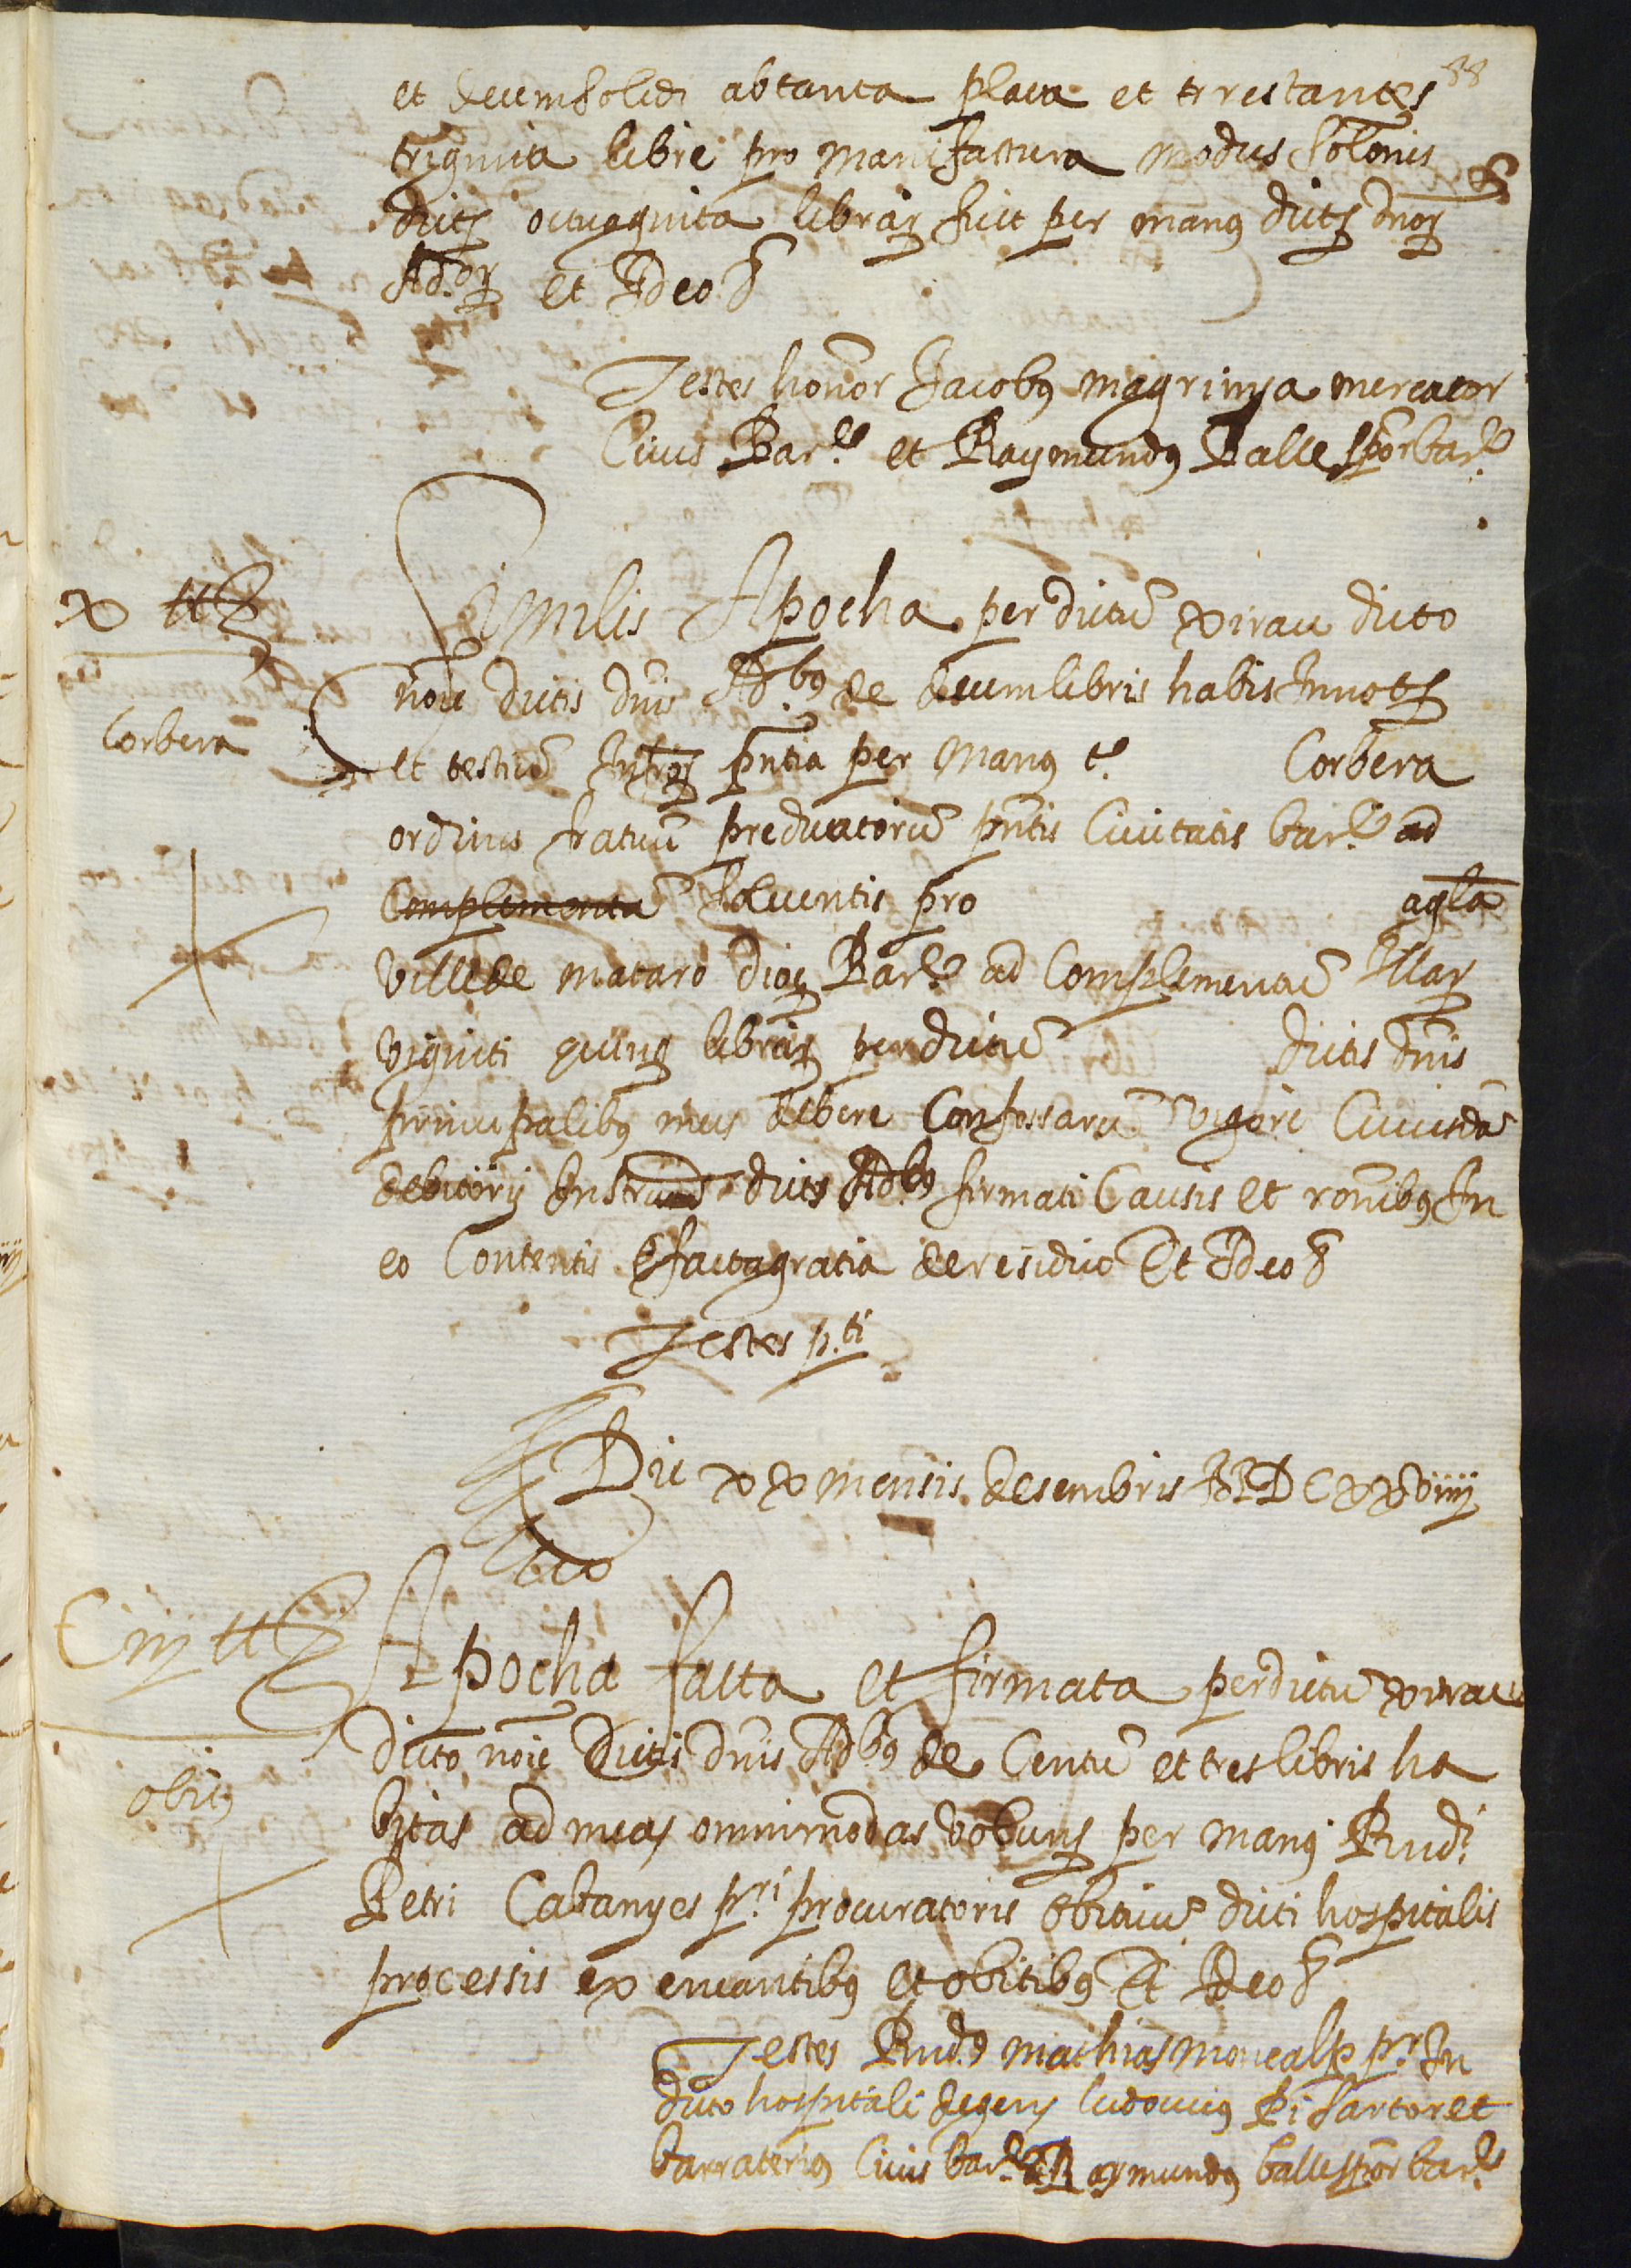 et decem solidi ab tanta plata et tt restantes 88
triginta libre pro manifactura modus solonis
dictȝ octuaginta librarȝ fuit per manꝰ dictȝ dnorȝ
Ad.orȝ et Ideo &
Testes honor Jacobꝰ magrinya mercator
Ciuis Bar.e et Raymundꝰ Balle spor bar.e
x ttȝ
Similis Apocha per dictũ xirau dicto
noie dictis dnis Ad.bꝰ de decem libris habis Innotȝ
Corbera
et testiũ Infrorȝ pntia per manꝰ t. Corbera
ordinis fratrũ predicatorũ pntis Ciuitatis bar.e ad
Complementũ soluentis pro agla
ville de mataro dioc Bar.e ad Complementũ Illarȝ
viginti quinqȝ librarȝ per dictũ dictis dnis
principalibꝰ meis debere Confessarũ vigore Cuiusdã
debitorij Instrum dictis Ad.bꝰ firmati Causis et ronibꝰ In
eo Contentis & facta gratia de residuo Et Ideo &
Testes p.ti
Die xx mensis desembris MDCxxviiij
Ciij ttȝ
Apocha facta et firmata per dictũ xirau
dicto noie Dictis dnis Ad.bꝰ de Centũ et tres libris ha
obitȝ
bitas ad meas omnimodas voluntȝ per manꝰ Rnd.i
Petri Cabanyes pr.i procuratoris obituũ dicti hospitalis
processis ex encantibꝰ et obitibꝰ Et Ideo &
Testes Rnd.ꝰ mathias moncalp pr. In
dicto hospitali degens ludouicꝰ Pi sartor et
barraterius Ciuis bar.e et Raymundꝰ balle spor bar.e